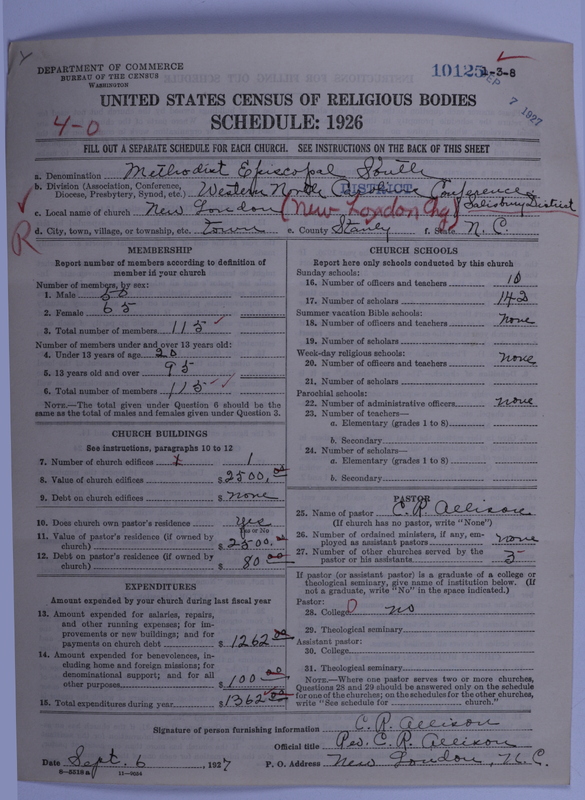 DEPARTMENT OF COMMERCE
BUREAU OF THE CENSUS
WASHINGTON
10125 1-3-8
SEP 7 1927
UNITED STATES CENSUS OF RELIGIOUS BODIES
4-0
SCHEDULE: 1926
FILL OUT A SEPARATE SCHEDULE FOR EACH CHURCH. SEE INSTRUCTIONS ON THE BACK OF THIS SHEET
a. Denomination Methodist Episcopal South
b. Division (Association, Conference, Diocese, Presbytery, Synod, etc.) Western North Carolina Conference
DISTRICT
Salisbury District
c. Local name of church New London (New London Chg)
R
d. City, town, village, or township, etc. town e. County Stanly f. State N. C.
MEMBERSHIP
Report number of members according to definition of member in your church
Number of members, by sex:
1. Male 50
2. Female 65
3. Total number of members 115
Number of members under and over 13 years old:
4. Under 13 years of age 20
5. 13 years old and over 95
6. Total number of members 115
NOTE.—The total given under Question 6 should be the same as the total of males and females given under Question 3.
CHURCH BUILDINGS
See instructions, paragraphs 10 to 12
7. Number of church edifices 1
8. Value of church edifices $ 2500.00
9. Debt on church edifices $ none
10. Does church own pastor's residence yes
Yes or No
11. Value of pastor's residence (if owned by church) $ 2500.00
12. Debt on pastor's residence (if owned by church) $ 80.00
EXPENDITURES
Amount expended by your church during last fiscal year
13. Amount expended for salaries, repairs, and other running expenses; for improvements or new buildings; and for payments on church debt $ 1262.00
14. Amount expended for benevolences, including home and foreign missions; for denominational support; and for all other purposes $ 100.00
15. Total expenditures during year $ 1362.00
CHURCH SCHOOLS
Report here only schools conducted by this church
Sunday schools:
16. Number of officers and teachers 10
17. Number of scholars 142
Summer vacation Bible schools:
18. Number of officers and teachers none
19. Number of scholars
Week-day religious schools:
20. Number of officers and teachers none
21. Number of scholars
Parochial schools:
22. Number of administrative officers none
23. Number of teachers—
a. Elementary (grades 1 to 8)
b. Secondary
24. Number of scholars—
a. Elementary (grades 1 to 8)
b. Secondary
PASTOR
25. Name of pastor C. R. Allison
(If church has no pastor, write "None")
26. Number of ordained ministers, if any, employed as assistant pastors none
27. Number of other churches served by the pastor or his assistants 3
If pastor (or assistant pastor) is a graduate of a college or theological seminary, give name of institution below. (If not a graduate, write "No" in the space indicated.)
Pastor:
28. College no
29. Theological seminary
Assistant pastor:
30. College
31. Theological seminary
NOTE.—Where one pastor serves two or more churches, Questions 28 and 29 should be answered only on the schedule for one of the churches; on the schedules for the other churches, write "See schedule for church."
Signature of person furnishing information C. R. Allison
Official title Rev. C. R. Allison
Date Sept. 6, 1927 P. O. Address New London, N. C.
11—9624